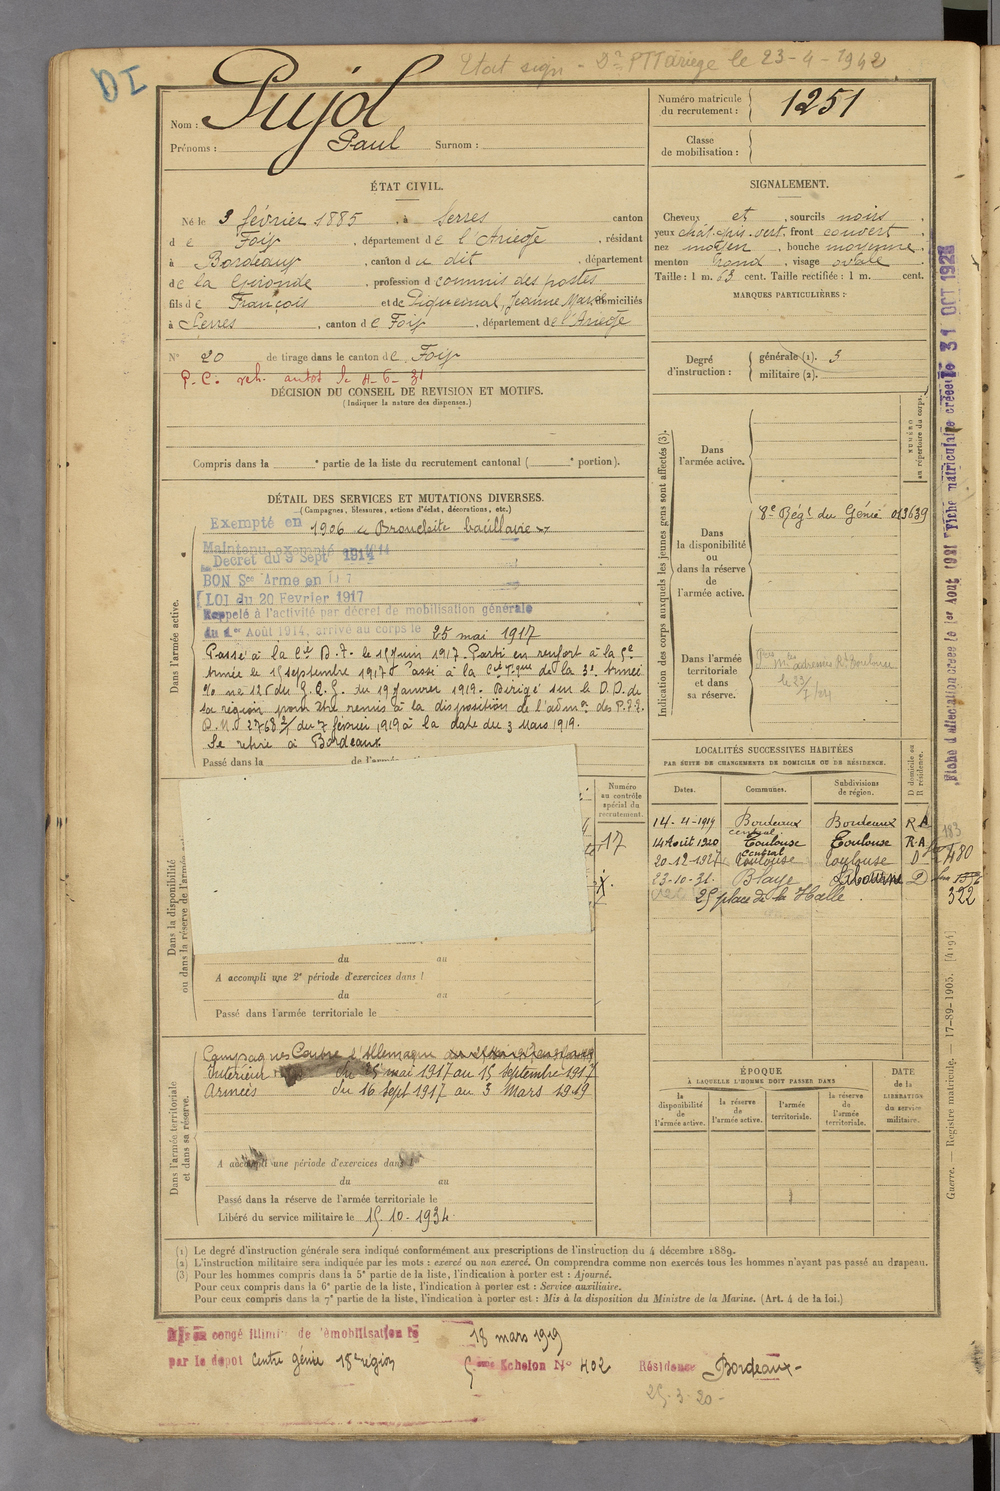 DI
Etat sign - Dn PTT Ariège le 23-4-1942
Nom : Pujol
Prénoms : Paul Surnom :
Numéro matricule du recrutement : 1251
Classe de mobilisation :
ÉTAT CIVIL.
Né le 3 février 1885, à Serres canton
de Foix, département de l'Ariège, résidant
à Bordeaux, canton du dit, département
de la Gironde, profession d commis des postes
fils de François et de Piquemal, Jeanne Marie domiciliés
à Serres, canton de Foix, département de l'Ariège
N° 20 de tirage dans le canton de Foix
P. C. reh. autos le 4-6-31
DÉCISION DU CONSEIL DE REVISION ET MOTIFS.
(Indiquer la nature des dispenses.)
Compris dans la e partie de la liste du recrutement cantonal ( e portion).
SIGNALEMENT.
Cheveux et, sourcils noirs,
yeux chât. gris. vert. front couvert,
nez moyen, bouche moyenne,
menton rond, visage ovale
Taille : 1 m. 63 cent. Taille rectifiée : 1 m. cent.
MARQUES PARTICULIÈRES :
Degré d'instruction : générale (1). 3
militaire (2).
DÉTAIL DES SERVICES ET MUTATIONS DIVERSES.
(Campagnes, blessures, actions d'éclat, décorations, etc.)
Dans l'armée active.
Exempté en 1906 « Bronchite bacillaire »
Maintenu exempté en 1914
Décret du 9 Sept 1914
BON Sce Armé en 1917
LOI du 20 Fevrier 1917
Rappelé à l'activité par décret de mobilisation générale
du 1er Août 1914, arrivé au corps le 25 mai 1917
Passé à la Cie D.T. le 15 juin 1917. Parti en renfort à la 5e
Armée le 15 septembre 1917 Passé à la Cie Tque de la 3e Armée
du G.Q.G. du 19 Janvier 1919. Dirigé sur le D.D. de
sa région pour être remis à la disposition de l'admon des P.T.T.
D.M. 2768 2/7 du 7 février 1919 à la date du 3 Mars 1919.
Se retire à Bordeaux
Passé dans la de l'armée
Indication des corps auxquels les jeunes gens sont affectés (3).
NUMÉRO au répertoire du corps.
Dans l'armée active.
Dans la disponibilité ou dans la réserve de l'armée active.
8e Régt du Génie 013639
Dans l'armée territoriale et dans sa réserve.
Toulouse
le 23/7/21
Fiche d'affectation créée le 1er Aout 1921 Fiche matriculaire créée le 31 OCT 1926
LOCALITÉS SUCCESSIVES HABITÉES
PAR SUITE DE CHANGEMENTS DE DOMICILE OU DE RÉSIDENCE.
Dates. Communes. Subdivisions de région. D domicile ou R résidence.
14-4-1919 Bordeaux Bordeaux R A
central
14 Août 1920 Toulouse Toulouse R-A
central
20-12-1927 Toulouse Toulouse D
23-10-31 Blaye Libourne D
25 place de la Halle
183
480
322
Dans la disponibilité ou dans la réserve de l'armée
Numéro au contrôle spécial du recrutement.
17
du au
A accompli une 2e période d'exercices dans l
du au
Passé dans l'armée territoriale le
Dans l'armée territoriale et dans sa réserve.
Campagnes Contre l'Allemagne
Intérieur du 25 mai 1917 au 15 septembre 1917
Armées du 16 Sept 1917 au 3 Mars 1919
A accompli une période d'exercices dans l
du au
Passé dans la réserve de l'armée territoriale le
Libéré du service militaire le 15-10-1934
ÉPOQUE
À LAQUELLE L'HOMME DOIT PASSER DANS
la disponibilité de l'armée active.
la réserve de l'armée active.
l'armée territoriale.
la réserve de l'armée territoriale.
DATE de la LIBÉRATION du service militaire.
Guerre. — Registre matricule. — 17-89-1905. [4194]
(1) Le degré d'instruction générale sera indiqué conformément aux prescriptions de l'instruction du 4 décembre 1889.
(2) L'instruction militaire sera indiquée par les mots : exercé ou non exercé. On comprendra comme non exercés tous les hommes n'ayant pas passé au drapeau.
(3) Pour les hommes compris dans la 5e partie de la liste, l'indication à porter est : Ajourné.
Pour ceux compris dans la 6e partie de la liste, l'indication à porter est : Service auxiliaire.
Pour ceux compris dans la 7e partie de la liste, l'indication à porter est : Mis à la disposition du Ministre de la Marine. (Art. 4 de la loi.)
Mis en congé illimité de démobilisation le 18 mars 1919
par le dépot Centre génie 18e région 5ème Echelon N° 402 Résidence Bordeaux-
25-3-20-